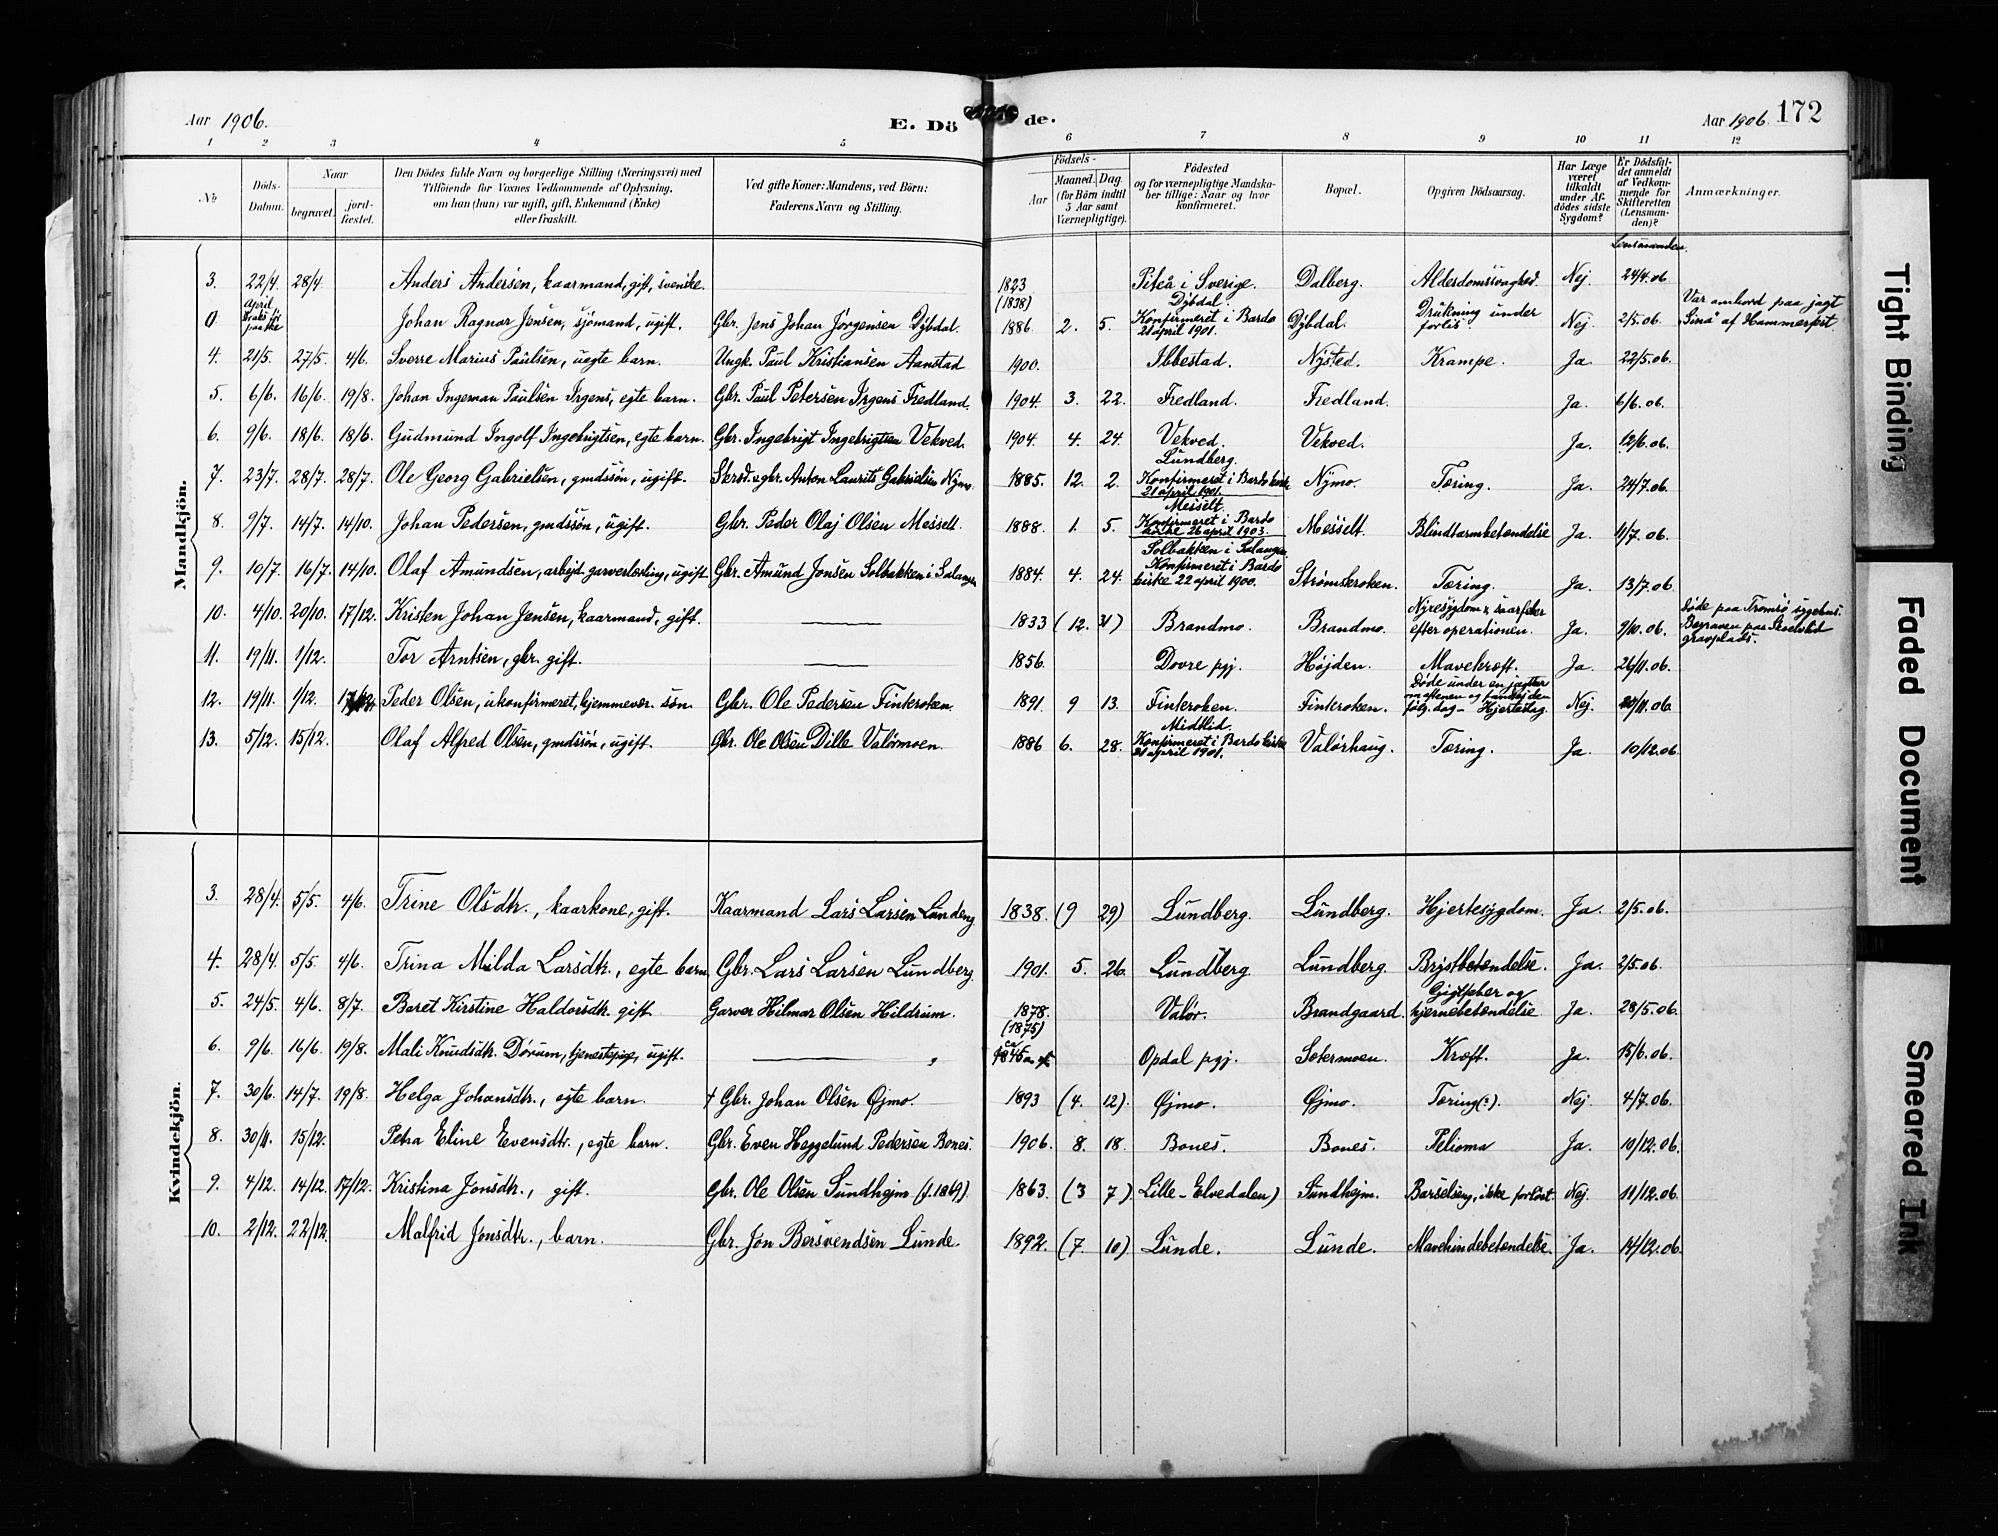 Aar 1906.
E. Dö de.
Aar 1906. 172
1 2 3 4 5 6 7 8 9 10 11 12
No
Döds-Datum.
Naar
begravet.
jord-fæstet.
Den Dödes fulde Navn og borgerlige Stilling (Næringsvei) med
Tilföiende for Voxnes Vedkommende af Oplysning,
om han (hun) var ugift, gift, Enkemand (Enke)
eller fraskilt.
Ved gifte Koner: Mandens, ved Börn:
Faderens Navn og Stilling.
Födsels-
Aar
Maaned. Dag
(for Börn indtil
5 Aar samt
Værnepligtige).
Födested
og for værnepligtige Mandska-
ber tillige: Naar og hvor
konfirmeret.
Bopæl.
Opgiven Dödsaarsag.
Har Læge
været
tilkaldt
under Af-
dödes sidste
Sygdom?
Er Dödsfal-
det anmeldt
af Vedkom-
mende for
Skifteretten
(Lensman-
den)?
Anmærkninger.
Lensmanden.
Mandkjön.
3. 22/4 28/4 Anders Andersen, kaarmand, gift, svenske. 1823 (1838) Piteå i Sverige. Dalberg. Alderdomssvaghed. Nej. 24/4.06
0 April Johan Ragnar Jensen, sjömand, ugift. Gbr. Jens Johan Jörgensen Dÿbdal. 1886. 2. 5. Dÿbdal. Konfirmeret i Bardo 21 april 1901. Dÿbdal. Drukning under forlis Nej. 2/5.06. Var ombord paa jagt "Sina" af Hammerfest
4. 21/5. 27/5 4/6. Sverre Marius Paulsen, uegte barn. Ungk. Paul Kristiansen Aanstad 1900. Ibbestad. Nysted. Krampe. Ja. 22/5.06.
5. 6/6. 16/6 19/8. Johan Ingeman Paulsen Irgens, egte barn. Gbr. Paul Petersen Irgens Fredland. 1904. 3. 22. Fredland. Fredland. Ja. 6/6.06.
6. 9/6. 18/6. 18/6. Gudmund Ingolf Ingebrigtsen, egte barn. Gbr. Ingebrigt Ingebrigtsen Vekved. 1904. 4. 24. Vekved. Vekved. Ja. 12/6.06.
7. 23/7. 28/7. 28/7. Ole Georg Gabrielsen, gmdssøn, ugift. Skræd. & gbr. Anton Laurits Gabrielsen Nymo. 1885. 12. 2. Lundberg. Konfirmeret i Bardo kirke 21 april 1901. Nymo. Tæring. Ja. 24/7.06.
8. 9/7. 14/7. 14/10. Johan Pedersen, gmdssön, ugift. Gbr. Peder Olaj Olsen Messelt. 1888. 1. 5. Messelt. Konfirmeret i Bardo kirke 26 april 1903. Messelt. Blindtarmbetændelse Ja. 11/7.06.
9. 10/7. 16/7. 14/10. Olaf Amundsen, arbejd. garverlærling, ugift. Gbr. Amund Jonsen Solbakken i Salangen 1884. 4. 24. Solbakken i Salangen. Konfirmeret i Bardo kirke 22 april 1900. Strömskroken. Tæring. Ja. 13/7.06
10. 4/10. 20/10. 17/12. Kristen Johan Jensen, kaarmand, gift. 1833 (12. 31) Brandmo. Brandmo. Nyresygdom & saarfeber efter operationen. Ja. 9/10.06. Døde paa Tromsø sygehus. Begraven paa gravplads.
11. 19/11. 1/12. Tor Arntsen, gbr. gift. 1856. Dovre pgj. Højden. Mavekræft. Ja. 26/11.06.
12. 19/11. 1/12. 17/12. Peder Olsen, ukonfirmeret, hjemmevær. søn. Gbr. Ole Pedersen Finkroken. 1891. 9 13. Finkroken. Finkroken. Døde under en jagttur om aftenen og fandtes den følg. dag – Hjerteslag. Nej. 20/11.06.
13. 5/12. 15/12. Olaf Alfred Olsen, gmdssön, ugift. Gbr. Ole Olsen Dille Valörmoen. 1886 6. 28. Midtlid. Konfirmeret i Bardo kirke 21 april 1901. Valörhaug. Tæring. Ja. 10/12.06.
Kvindekjön.
3. 28/4. 5/5. 4/6. Trine Olsdtr., kaarkone, gift. Kaarmand Lars Larsen Lundberg 1838. (9 29) Lundberg. Lundberg. Hjertesygdom. Ja. 2/5.06.
4. 28/4. 5/5. 4/6. Trina Milda Larsdtr., egte barn. Gbr. Lars Larsen Lundberg 1901. 5. 26. Lundberg Lundberg. Brystbetændelse. Ja. 2/5.06.
5. 24/5. 4/6. 8/7. Beret Kirstine Haldorsdtr. gift. Garver Hilmar Olsen Hildrum. 1878. (1875) Valör. Brandgaard. Gigtfeber og hjernebetændelse. Ja. 28/5.06.
6. 9/6. 16/6. 19/8. Mali Knudsdtr. Dörum, tjenestepige, ugift. ca 1845 Opdal pgj. Sætermoen. Kræft. Ja. 15/6.06.
7. 30/6. 14/7. 19/8. Helga Johansdtr., egte barn. † Gbr. Johan Olsen Øjmo. 1893 (4. 12). Øjmo. Øjmo. Tæring (?). Nej. 4/7.06.
8. 30/11. 15/12. Petra Eline Evensdtr., egte barn. Gbr. Even Heggelund Pedersen Bones. 1906. 8. 18. Bones. Bones. Pelioma Ja. 10/12.06.
9. 4/12. 14/12. 17/12. Kristina Jonsdtr., gift. Gbr. Ole Olsen Sundhejm (f. 1869). 1863. (3 7). Lille-Elvedalen) Sundhejm. Barselseng, ikke forløst. Nej. 11/12.06.
10. 2/12. 22/12. Malfrid Jonsdtr., barn. Gbr. Jon Bersvendsen Lunde. 1892. (7 10) Lunde. Lunde. Mavehindebetændelse. Ja. 14/12.06.
Tight Binding
Faded Document
Smeared Ink